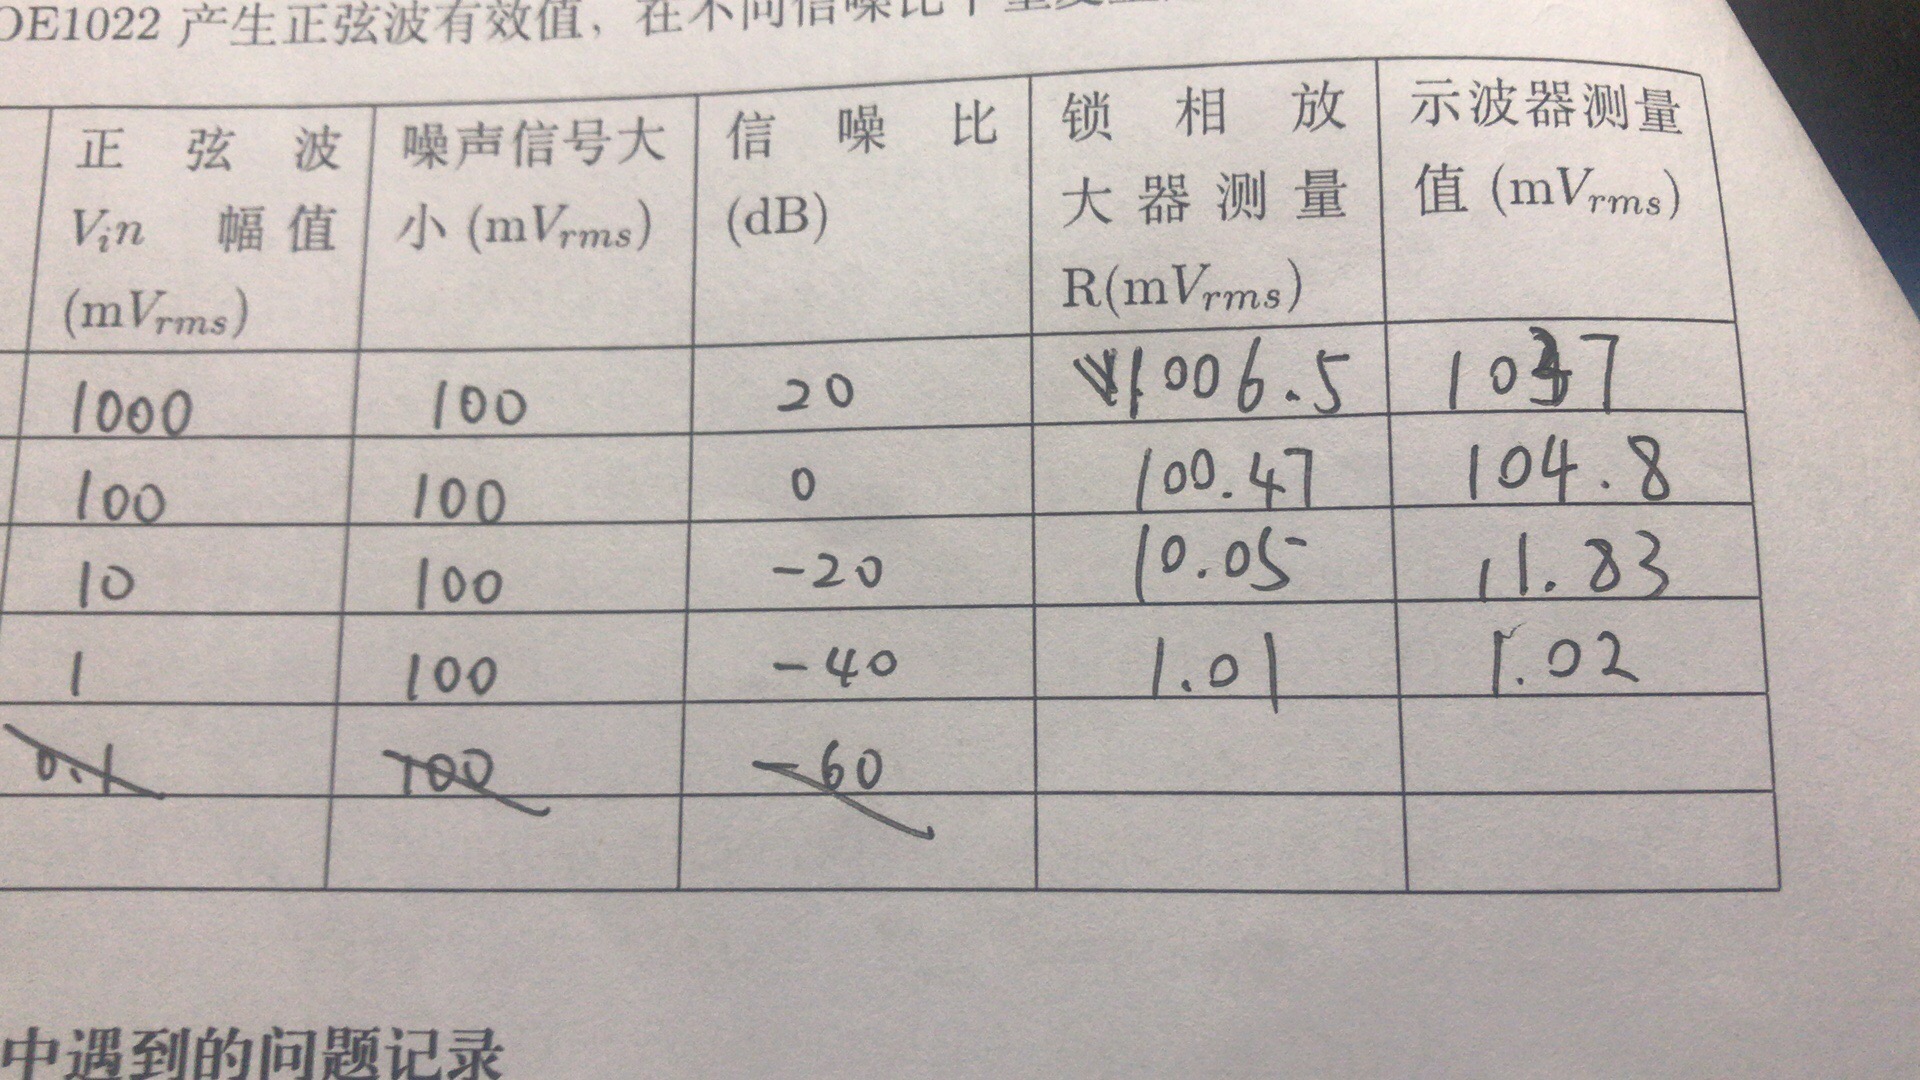 OE1022 产生正弦波有效值，在不同信噪比下重复上
正弦波 Vin 幅值 (mVrms) 噪声信号大小 (mVrms) 信噪比 (dB) 锁相放大器测量 R(mVrms) 示波器测量值 (mVrms)
1000 100 20 1006.5 1037
100 100 0 100.47 104.8
10 100 -20 10.05 11.83
1 100 -40 1.01 1.02
0.1 100 -60
中遇到的问题记录